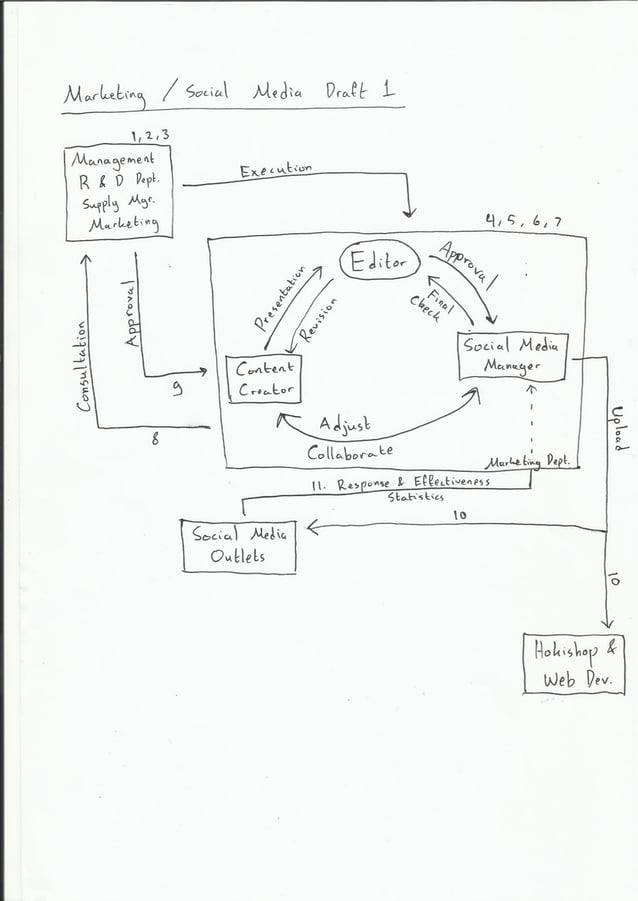 Marketing / Social Media Draft 1
1, 2, 3
Management
R & D Dept.
Supply Mgr.
Marketing
Execution
4, 5, 6, 7
Editor
Approval
Final
Check
Presentation
Revision
Content
Creator
Social Media
Manager
Adjust
Collaborate
Marketing Dept.
Approval
9
Consultation
8
Upload
11. Response & Effectiveness
Statistics
10
Social Media
Outlets
10
Hokishop &
Web Dev.